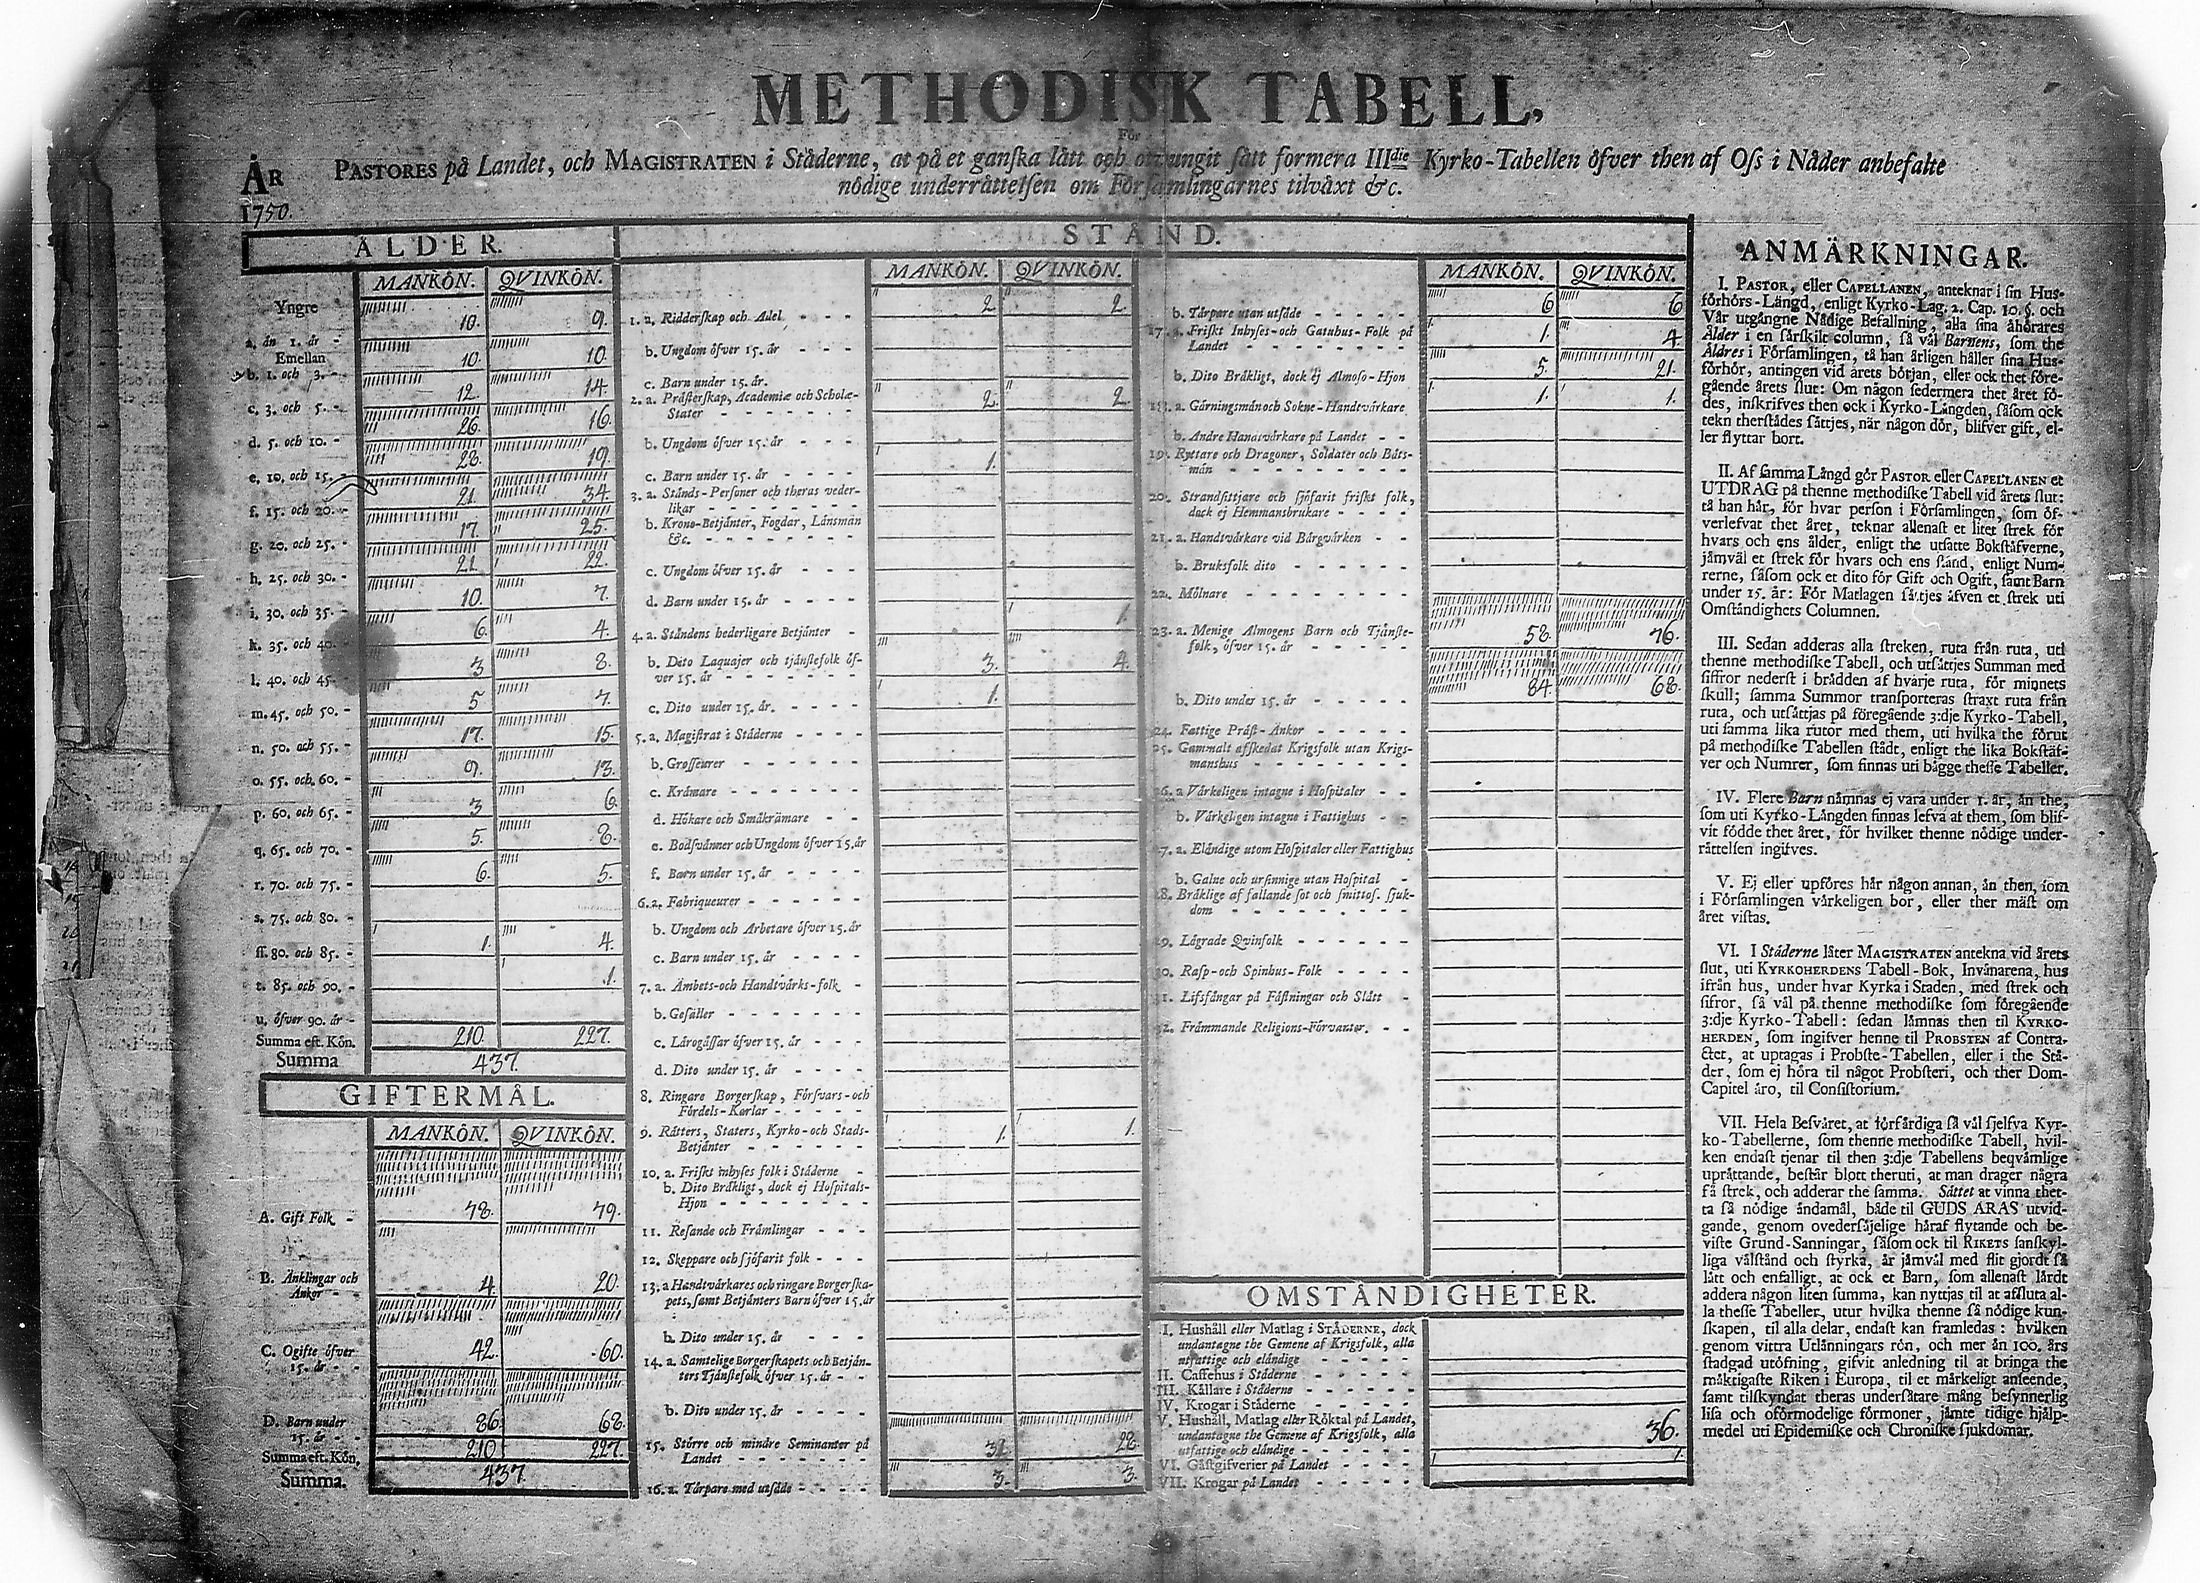 METHODISK TABELL,
För
PASTORES på Landet, och MAGISTRATEN i Ståderne, at på et ganſka lått och otvungit ſått formera IIIdie Kyrko-Tabellen öfver then af Oſs i Nåder anbefalte
nödige underråttelſen om Förſamlingarnes tilvåxt &c.
ÅR
1750.
ÅLDER.
MANKÖN. QVINKÖN.
Yngre
a. än 1. år - 10. 9.
Emellan
b. 1. och 3. - 10. 10.
c. 3. och 5. - 12. 14.
d. 5. och 10. - 26. 16.
e. 10. och 15. - 28. 19.
f. 15. och 20. - 21. 34.
g. 20. och 25. - 17. 25.
h. 25. och 30. - 21. 22.
i. 30. och 35. - 10. 7.
k. 35. och 40. - 6. 4.
l. 40. och 45. - 3 8.
m. 45. och 50. - 5 7.
n. 50. och 55. - 17. 15.
o. 55. och 60. - 9. 13.
p. 60. och 65. - 3 6
q. 65. och 70. - 5. 8.
r. 70. och 75. - 6. 5.
s. 75. och 80. -
ſſ. 80. och 85. - 1. 4.
t. 85. och 90. - 1.
u. öfver 90. år -
Summa eft. Kön. 210. 227.
Summa 437.
GIFTERMÅL.
MANKÖN. QVINKÖN.
A. Gift Folk - 78. 79.
B. Änklingar och
Änkor - - 4. 20.
C. Ogifte öfver
15. år - - 42. 60.
D. Barn under
15. år - - 86. 68.
Summa eft. Kön, 210. 227.
Summa. 437.
STÅND.
MANKÖN. QVINKÖN.
1. a. Ridderſkap och Adel - - - 2 2
b. Ungdom öfver 15. år - - -
c. Barn under 15. år.
2. a. Pråſterſkap, Academiæ och Scholæ-
Stater - - - - - - 2. 2
b. Ungdom öfver 15. år - - -
c. Barn under 15. år - - - - 1.
3. a. Stånds-Perſoner och theras veder-
likar - - - - - - -
b. Krono-Betjånter, Fogdar, Lånsmån
&c. - - - - - - -
c. Ungdom öfver 15. år - - -
d. Barn under 15. år - - - -
4. a. Ståndens hederligare Betjånter - 1.
b. Dito Laquajer och tjånſtefolk öf-
ver 15. år - - - - - - 3. 4.
c. Dito under 15. år. - - - - 1.
5. a. Magiſtrat i Ståderne - - -
b. Groſſeurer - - - - - -
c. Kråmare - - - - - - -
d. Hökare och Småkråmare - - -
e. Bodſvånner och Ungdom öfver 15. år
f. Barn under 15. år - - - -
6. a. Fabriqueurer - - - - - -
b. Ungdom och Arbetare öfver 15. år
c. Barn under 15. år - - - -
7. a. Åmbets-och Handtvårks-folk -
b. Geſåller - - - - - - -
c. Lårogåſſar öfver 15. år - - -
d. Dito under 15. år - - - -
8. Ringare Borgerſkap, Förſvars-och
Fördels-Karlar - - - - -
9. Råtters, Staters, Kyrko-och Stads-
Betjånter - - - - - - 1. 1.
10. a. Friſkt inhyſes folk i Ståderne -
b. Dito Bråkligt, dock ej Hoſpitals-
Hjon - - - - - - -
11. Reſande och Fråmlingar - - -
12. Skeppare och ſjöfarit folk - - -
13. a Handtvårkares och ringare Borgerſka-
pets, ſamt Betjånters Barn öfver 15. år
b. Dito under 15. år - - -
14. a. Samtelige Borgerſkapets och Betjån-
ters Tjånſtefolk öfver 15. år - -
b. Dito under 15. år - - - -
15. Större och mindre Hemmanter på
Landet - - - - - - 28.
16. a. Tårpare med utſåde - - - 3. 3.
MANKÖN. QVINKÖN.
b. Tårpare utan utſåde - - - - 6 6
17. a. Friſkt Inhyſes-och Gatuhus-Folk på
Landet - - - - - - - 1. 4
b. Dito Bråkligt, dock ej Almoſo-Hjon 5. 21.
18. a. Gårningsmån och Sokne-Handtvårkare 1. 1.
b. Andre Handtvårkare på Landet - -
19. Ryttare och Dragoner, Soldater och Båts-
mån - - - - - - - -
20. Strandſittjare och ſjöfarit friſkt folk,
dock ej Hemmansbrukare - - - -
21. a. Handtvårkare vid Bårgvårken - -
b. Bruksfolk dito - - - - - -
22. Mölnare - - - - - - - -
23. a. Menige Almogens Barn och Tjånſte-
folk, öfver 15. år - - - - - 58. 76.
b. Dito under 15. år - - - - 84. 68.
24. Fattige Pråſt-Änkor - - - -
25. Gammalt afſkedat Krigsfolk utan Krigs-
manshus - - - - - - -
26. a Vårkeligen intagne i Hoſpitaler - -
b. Vårkeligen intagne i Fattighus - -
27. a. Elåndige utom Hoſpitaler eller Fattighus
b. Galne och urſinnige utan Hoſpital -
28. Bråklige af fallande ſot och ſmittoſ. ſjuk-
dom - - - - - - - -
29. Lågrade Qvinfolk - - - - - -
30. Raſp-och Spinhus-Folk - - - -
31. Lifsfångar på Fåſtningar och Slått -
32. Fråmmande Religions-Förvanter. - -
OMSTÅNDIGHETER.
I. Hushåll eller Matlag i STÅDERNE, dock
undantagne the Gemene af Krigsfolk, alla
utfattige och elåndige - - - - -
II. Caffehus i Ståderne - - - - -
III. Kållare i Ståderne - - - - -
IV. Krogar i Ståderne - - - - -
V. Hushåll, Matlag eller Röktal på Landet,
undantagne the Gemene af Krigsfolk, alla
utfattige och elåndige - - - - 36.
VI. Gåſtgifverier på Landet - - - - 1.
VII. Krogar på Landet - - - - -
ANMÄRKNINGAR.
I. PASTOR, eller CAPELLANEN, anteknar i ſin Hus-
förhörs-Långd, enligt Kyrko-Lag. 2. Cap. 10. §. och
Vår utgångne Nådige Befallning, alla ſina åhörares
Ålder i en ſårſkilt column, ſå vål Barnens, ſom the
Åldres i Förſamlingen, tå han årligen håller ſina Hus-
förhör, antingen vid årets bötjan, eller ock thet före-
gående årets ſlut: Om någon ſedermera thet året fö-
des, inſkrifves then ock i Kyrko-Långden, ſåſom ock
tekn therſtådes ſåttjes, når någon dör, blifver gift, el-
ler flyttar bort.
II. Af ſamma Långd gör PASTOR eller CAPELLANEN et
UTDRAG på thenne methodiſke Tabell vid årets ſlut:
tå han hår, för hvar perſon i Förſamlingen, ſom öf-
verlefvat thet året, teknar allenaſt et litet ſtrek för
hvars och ens ålder, enligt the utſatte Bokſtåfverne,
jåmvål et ſtrek för hvars och ens ſtånd, enligt Num-
rerne, ſåſom ock et dito för Gift och Ogift, ſamt Barn
under 15. år: För Matlagen ſåttjes åfven et ſtrek uti
Omſtåndighets Columnen.
III. Sedan adderas alla ſtreken, ruta från ruta, uti
thenne methodiſke Tabell, och utſåttjes Summan med
ſiffror nederſt i brådden af hvarje ruta, för minnets
ſkull; ſamma Summor transporteras ſtraxt ruta från
ruta, och utſåttjas på föregående 3:dje Kyrko-Tabell,
uti ſamma lika rutor med them, uti hvilka the förut
på methodiſke Tabellen ſtådt, enligt the lika Bokſtåf-
ver och Numrer, ſom finnas uti bågge theſſe Tabeller.
IV. Flere Barn nåmnas ej vara under 1. år, ån the,
ſom uti Kyrko-Långden finnas lefva af them, ſom blif-
vit födde thet året, för hvilket thenne nödige under-
råttelſen ingifves.
V. Ej eller upföres hår någon annan, ån then, ſom
i Förſamlingen vårkeligen bor, eller ther måſt om
året viſtas.
VI. I Ståderne låter MAGISTRATEN antekna vid årets
ſlut, uti KYRKOHERDENS Tabell-Bok, Invånarena, hus
ifrån hus, under hvar Kyrka i Staden, med ſtrek och
ſifror, ſå vål på thenne methodiſke ſom föregående
3:dje Kyrko-Tabell: ſedan låmnas then til KYRKO-
HERDEN, ſom ingifver henne til PROBSTEN af Contra-
ctet, at uptagas i Probſte-Tabellen, eller i the Stå-
der, ſom ej höra til något Probſteri, och ther Dom-
Capitel åro, til Conſiſtorium.
VII. Hela Beſvåret, at förfårdiga ſå vål ſjelfva Kyr-
ko-Tabellerne, ſom thenne methodiſke Tabell, hvil-
ken endaſt tjenar til then 3:dje Tabellens beqvåmlige
upråttande, beſtår blott theruti, at man drager några
få ſtrek, och adderar the ſamma. Såttet at vinna thet-
ta ſå nödige åndamål, både til GUDS ÅRAS utvid-
gande, genom overderſåjelige håraf flytande och be-
viſte Grund-Sanningar, ſåſom ock til RIKETS ſanſkyl-
liga vålſtånd och ſtyrka, år jåmvål med flit gjordt ſå
lått och enfalligt, at ock et Barn, ſom allenaſt lårdt
addera någon liten ſumma, kan nyttjas til at affluta al-
la theſſe Tabeller, utur hvilka thenne ſå nödige kun-
ſkapen, til alla delar, endaſt kan framledas: hvilken
genom vittra Utlånningars rön, och mer ån 100. års
ſtadgad utöfning, gifvit anledning til at bringa the
måktigaſte Riken i Europa, til et mårkeligt anſeende,
ſamt tilſkyndat theras underſåtare mång beſynnerlig
liſa och oförmodelige förmoner, jåmte tidige hjålp-
medel uti Epidemiſke och Chroniſke ſjukdomar.